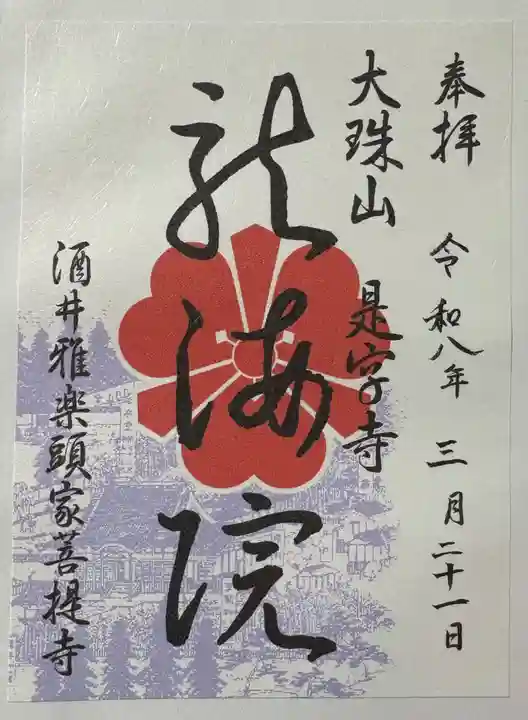 奉拝 令和八年 三月二十一日
大珠山 是字寺
龍海院
酒井雅楽頭家菩提寺